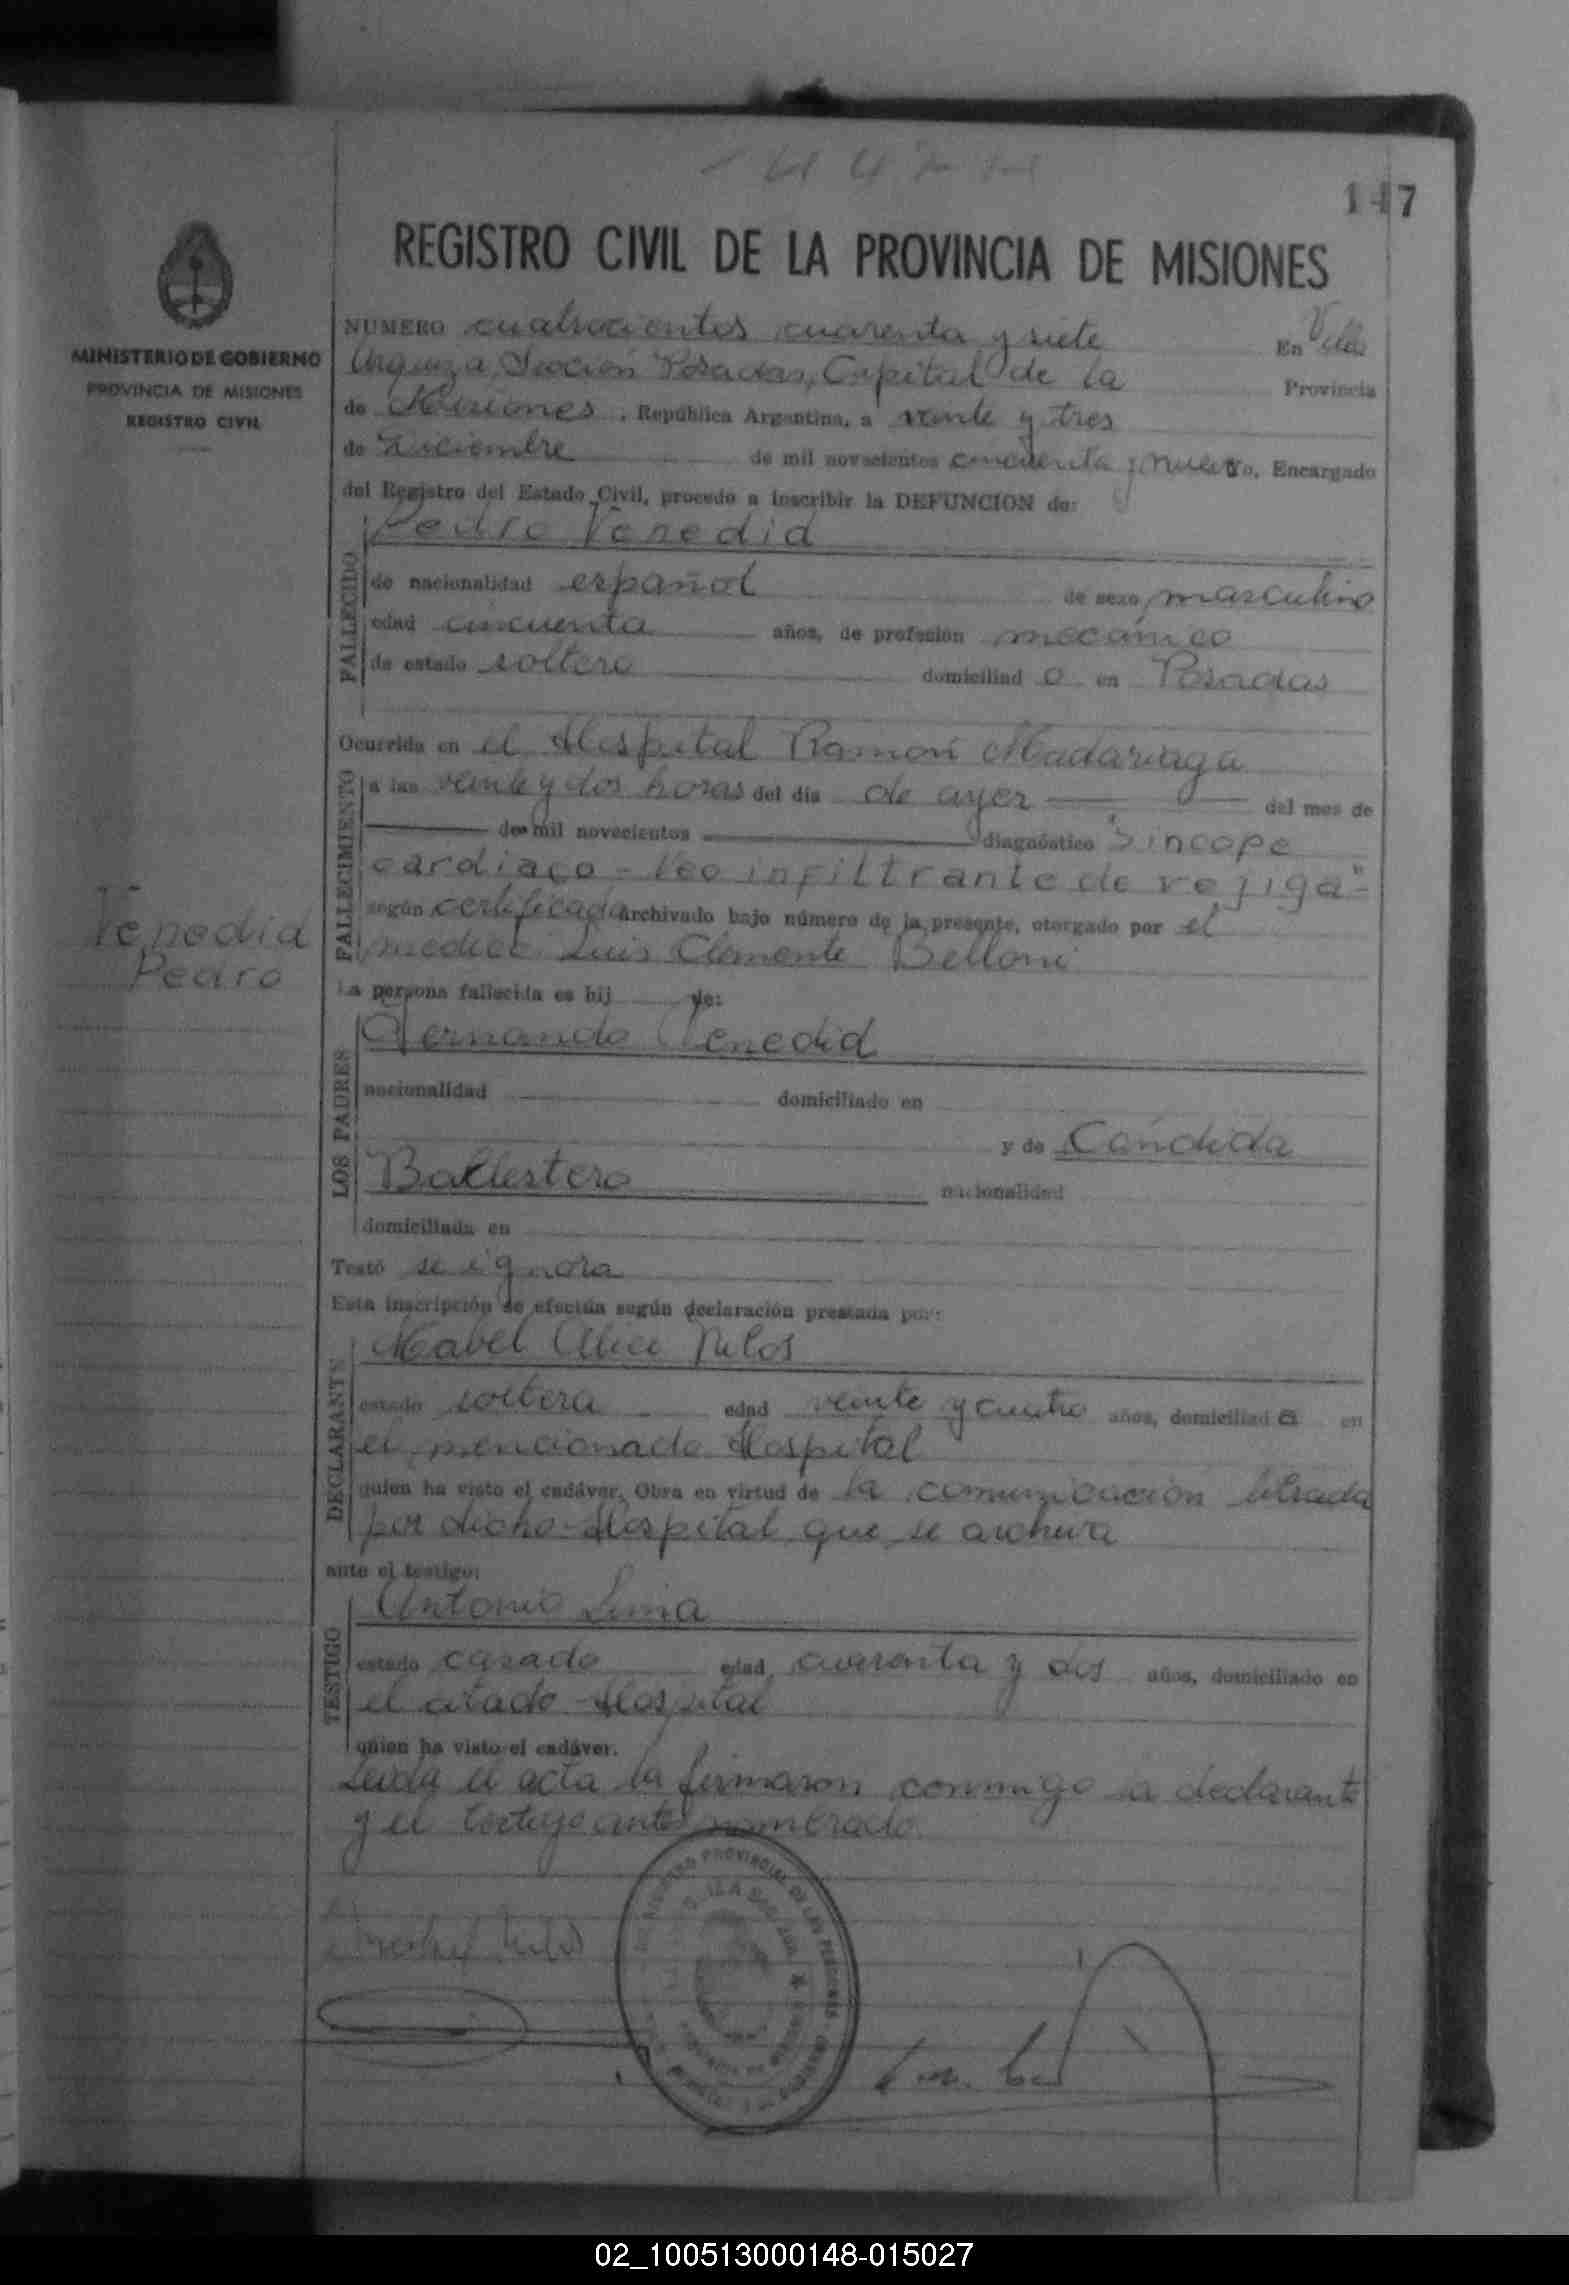 147
REGISTRO CIVIL DE LA PROVINCIA DE MISIONES
MINISTERIO DE GOBIERNO
PROVINCIA DE MISIONES
REGISTRO CIVIL
NUMERO cuatrocientos cuarenta y siete En Villa
Urquiza, Sección Posadas, Capital de la Provincia
de Misiones, República Argentina, a veinte y tres
de Diciembre de mil novecientos cincuenta y nueve yo, Encargado
del Registro del Estado Civil, procedo a inscribir la DEFUNCION de:
FALLECIDO
Pedro Venedid
de nacionalidad español de sexo masculino
edad cincuenta años, de profesión mecánico
de estado soltero domiciliad o en Posadas
FALLECIMIENTO
Ocurrida en el Hospital Ramón Madariaga
a las veinte y dos horas del día de ayer del mes de
de mil novecientos diagnóstico "Síncope
cardiaco - Neo infiltrante de vejiga"-
según certificado archivado bajo número de la presente, otorgado por el
medico Luis Clemente Belloni
Venedid
Pedro
La persona fallecida es hij de:
LOS PADRES
Fernando Venedid
nacionalidad domiciliado en
y de Cándida
Ballestero nacionalidad
domiciliada en
Testó se ignora
Esta inscripción se efectúa según declaración prestada por:
DECLARANTE
Mabel Alice Nulos
estado soltera edad veinte y cuatro años, domiciliad a en
el mencionado Hospital
quien ha visto el cadáver. Obra en virtud de la comunicación librada
por dicho Hospital que se archiva
ante el testigo:
TESTIGO
Antonio Lima
estado casado edad cuarenta y dos años, domiciliado en
el citado Hospital
quien ha visto el cadáver.
Leida el acta la firmaron conmigo la declarante
y el testigo antes nombrado.
02_100513000148-015027